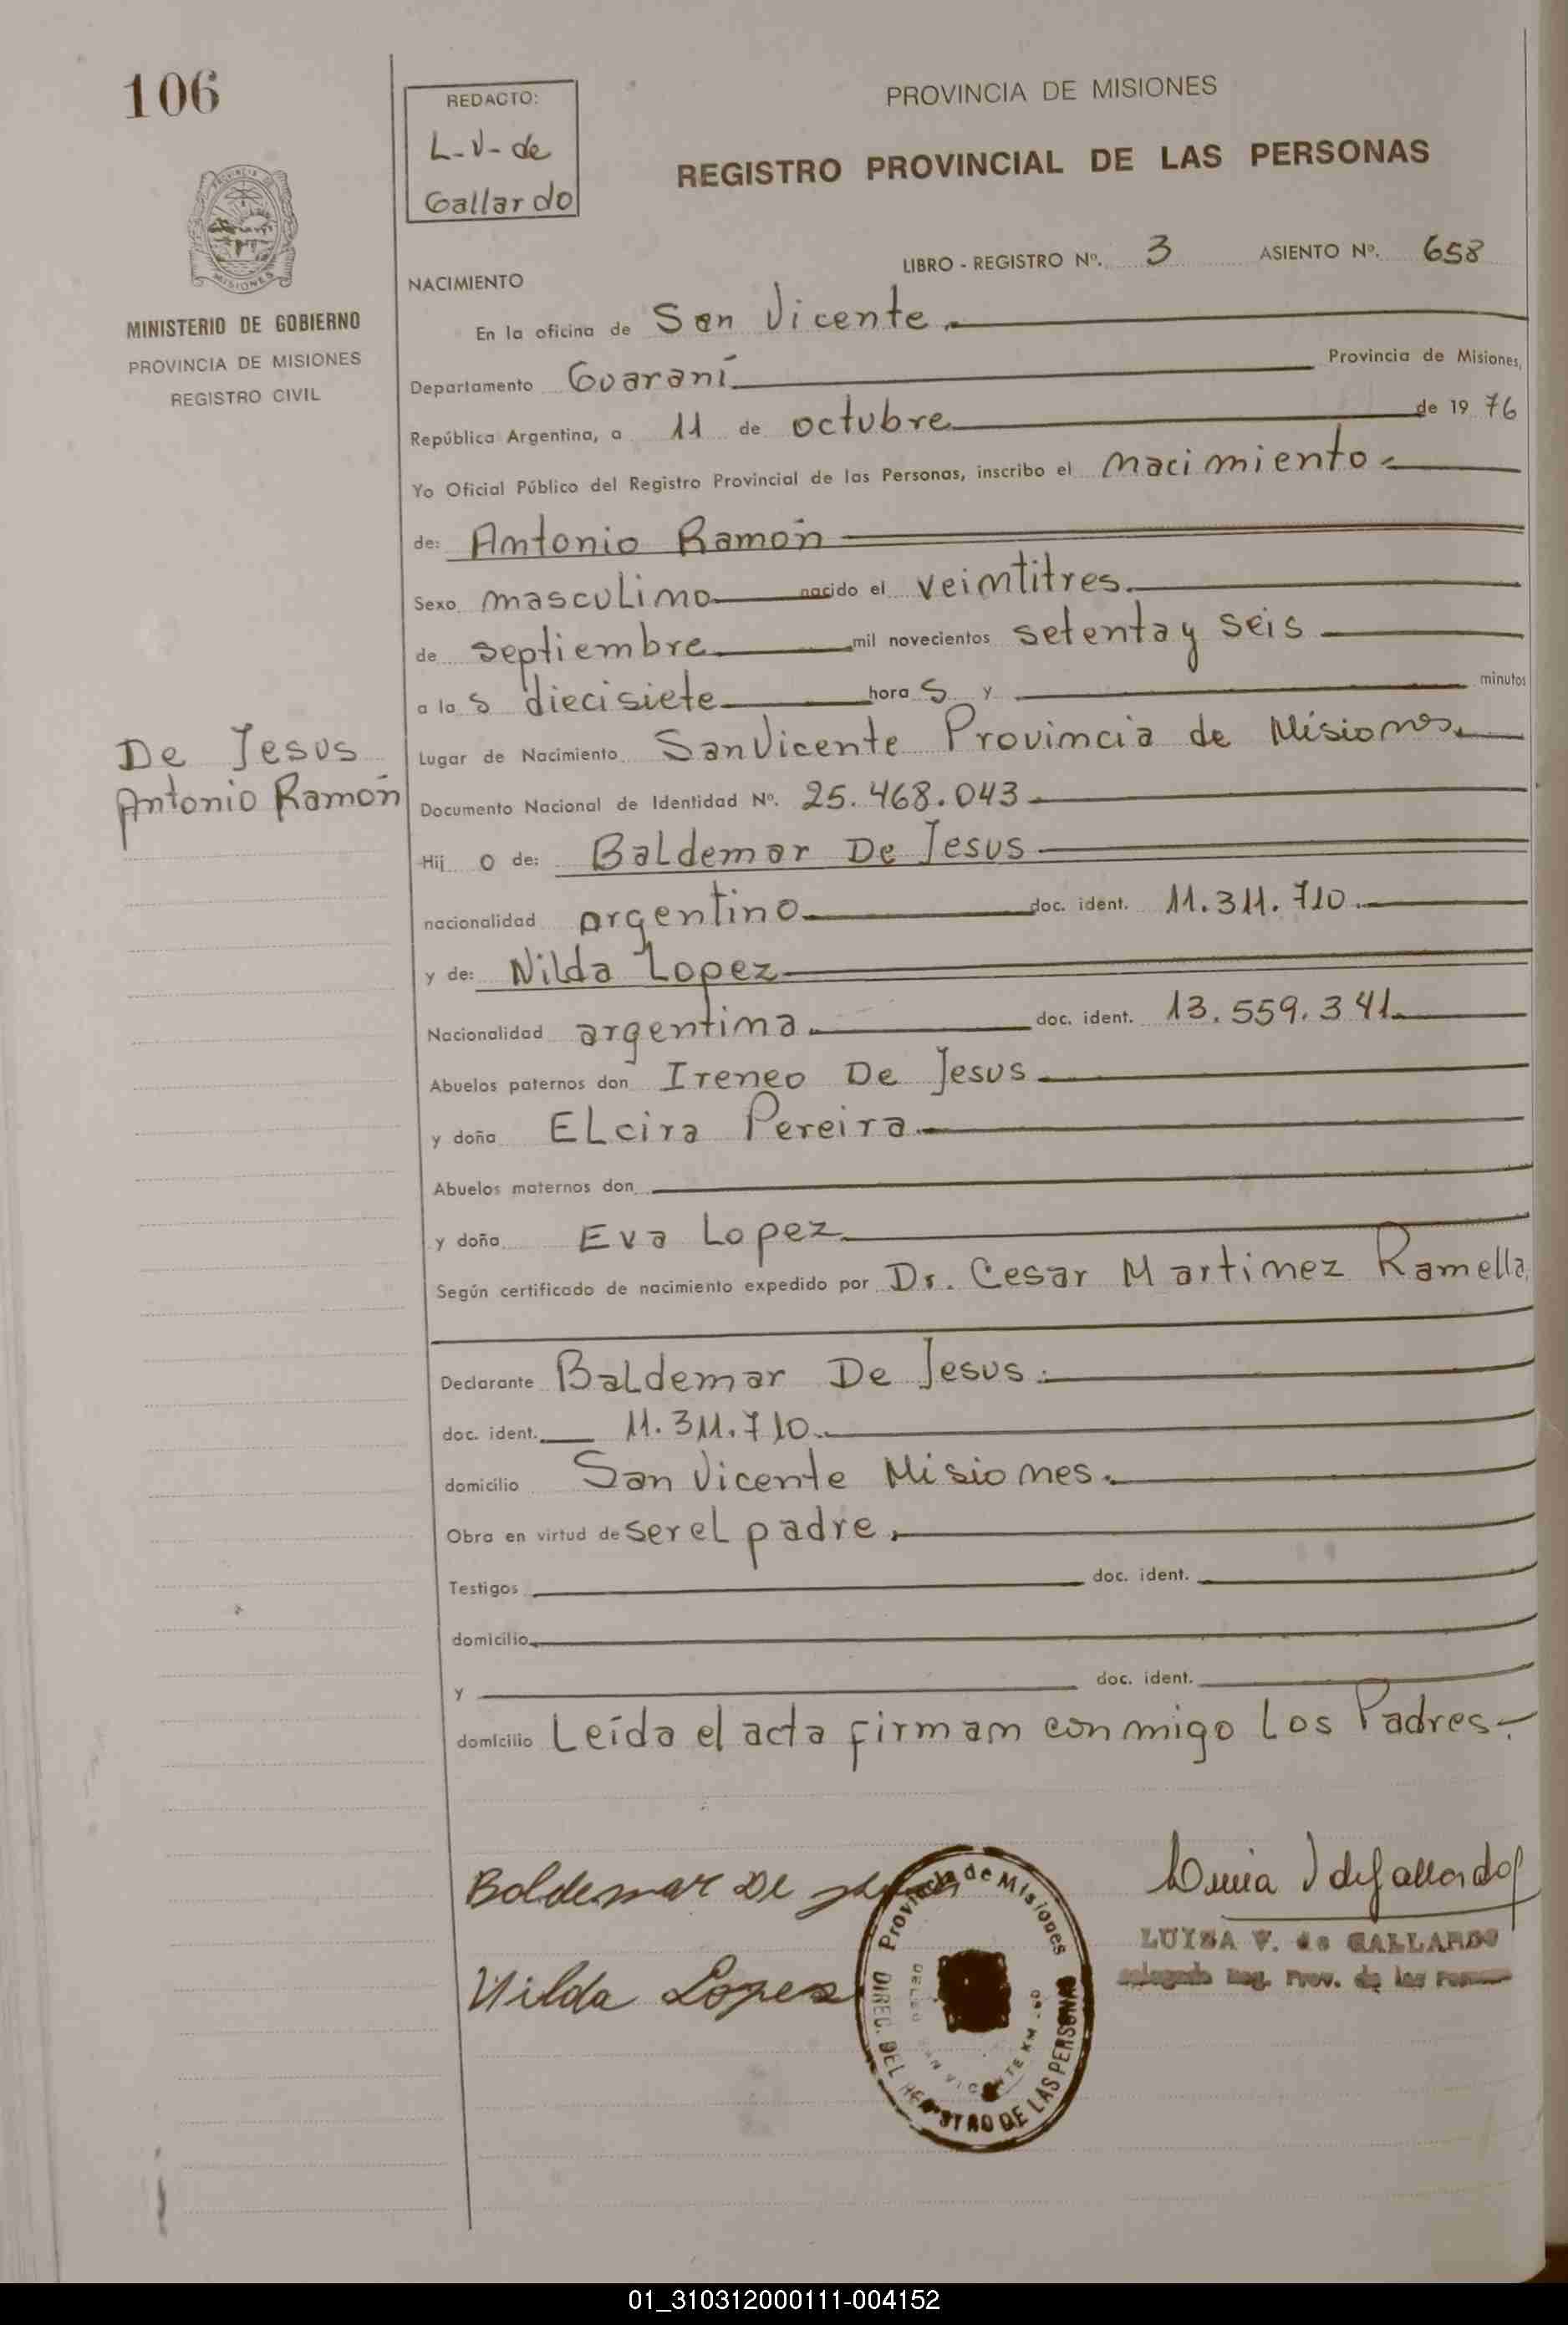 106
REDACTO:
L-V- de
Gallardo
PROVINCIA DE MISIONES
REGISTRO PROVINCIAL DE LAS PERSONAS
MISIONES
MINISTERIO DE GOBIERNO
PROVINCIA DE MISIONES
REGISTRO CIVIL
LIBRO - REGISTRO Nº. 3 ASIENTO Nº. 658
NACIMIENTO
En la oficina de San Vicente.
Departamento Guaraní Provincia de Misiones,
República Argentina, a 11 de octubre de 19 76
Yo Oficial Público del Registro Provincial de las Personas, inscribo el nacimiento
de: Antonio Ramón
Sexo masculino nacido el veintitres.
de septiembre mil novecientos setenta y seis
a la s diecisiete hora s y minutos
Lugar de Nacimiento San Vicente Provincia de Misiones.
De Jesus
Antonio Ramón
Documento Nacional de Identidad Nº. 25.468.043
Hij o de: Baldemar De Jesus
nacionalidad argentino doc. ident. 11.311.710.
y de: Nilda Lopez
Nacionalidad argentina. doc. ident. 13.559.341.
Abuelos paternos don Ireneo De Jesus
y doña ELcira Pereira.
Abuelos maternos don
y doña Eva Lopez
Según certificado de nacimiento expedido por Dr. Cesar Martinez Ramella.
Declarante Baldemar De Jesus.
doc. ident. 11.311.710.
domicilio San Vicente Misiones.
Obra en virtud de ser el padre.
Testigos doc. ident.
domicilio
y doc. ident.
domicilio Leída el acta firman conmigo Los Padres.-
Boldemar De Jesus
Nilda Lopez
Provincia de Misiones
DIREC. DEL REGISTRO DE LAS PERSONAS
SAN VICENTE KM. 60
Luisa V de Gallardo
LUISA V. de GALLARDO
Delegada Reg. Prov. de las Personas
01_310312000111-004152